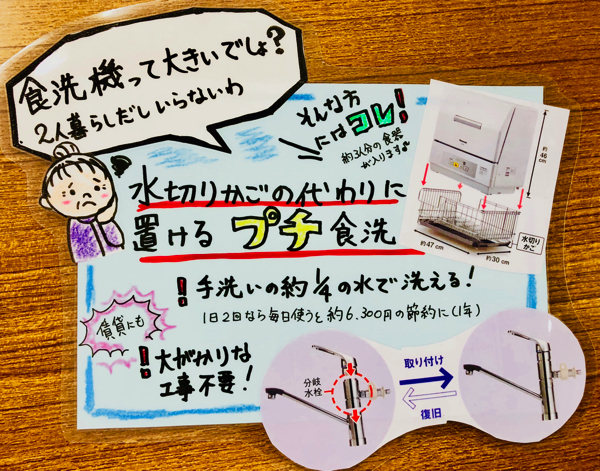 食洗機って大きいでしょ?
2人暮らしだしいらないわ
そんな方
にはコレ!
約3人分の食器
が入りますよ
水切りかごの代わりに
置けるプチ食洗
約46cm
水切り
かご
約47cm
約30cm
!手洗いの約1/4の水で洗える!
1日2回なら毎日使うと約6,300円の節約に(1年)
賃貸にも
!大がかりな
工事不要!
分岐
水栓
取り付け
復旧